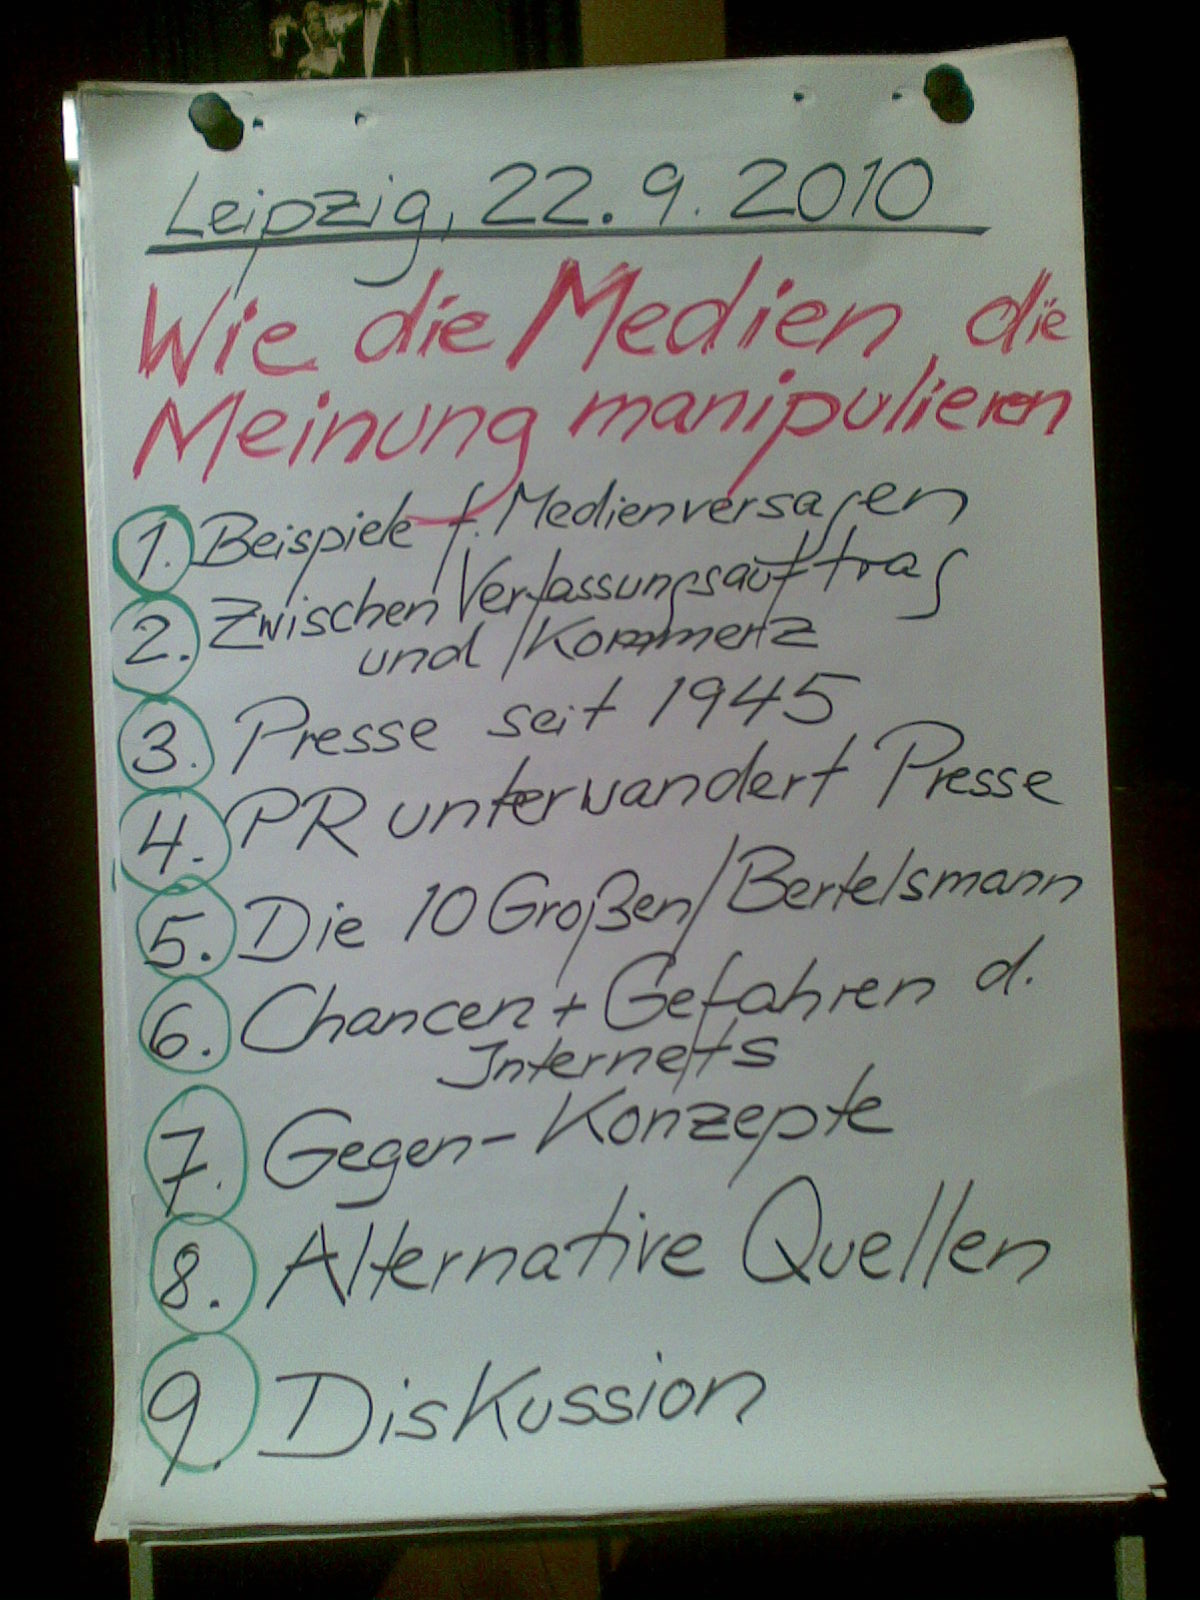 Leipzig, 22.9.2010
Wie die Medien die
Meinung manipulieren
1. Beispiele f. Medienversagen
2. Zwischen Verfassungsauftrag
und Kommerz
3. Presse seit 1945
4. PR unterwandert Presse
5. Die 10 Großen/Bertelsmann
6. Chancen + Gefahren d.
Internets
7. Gegen-Konzepte
8. Alternative Quellen
9. Diskussion